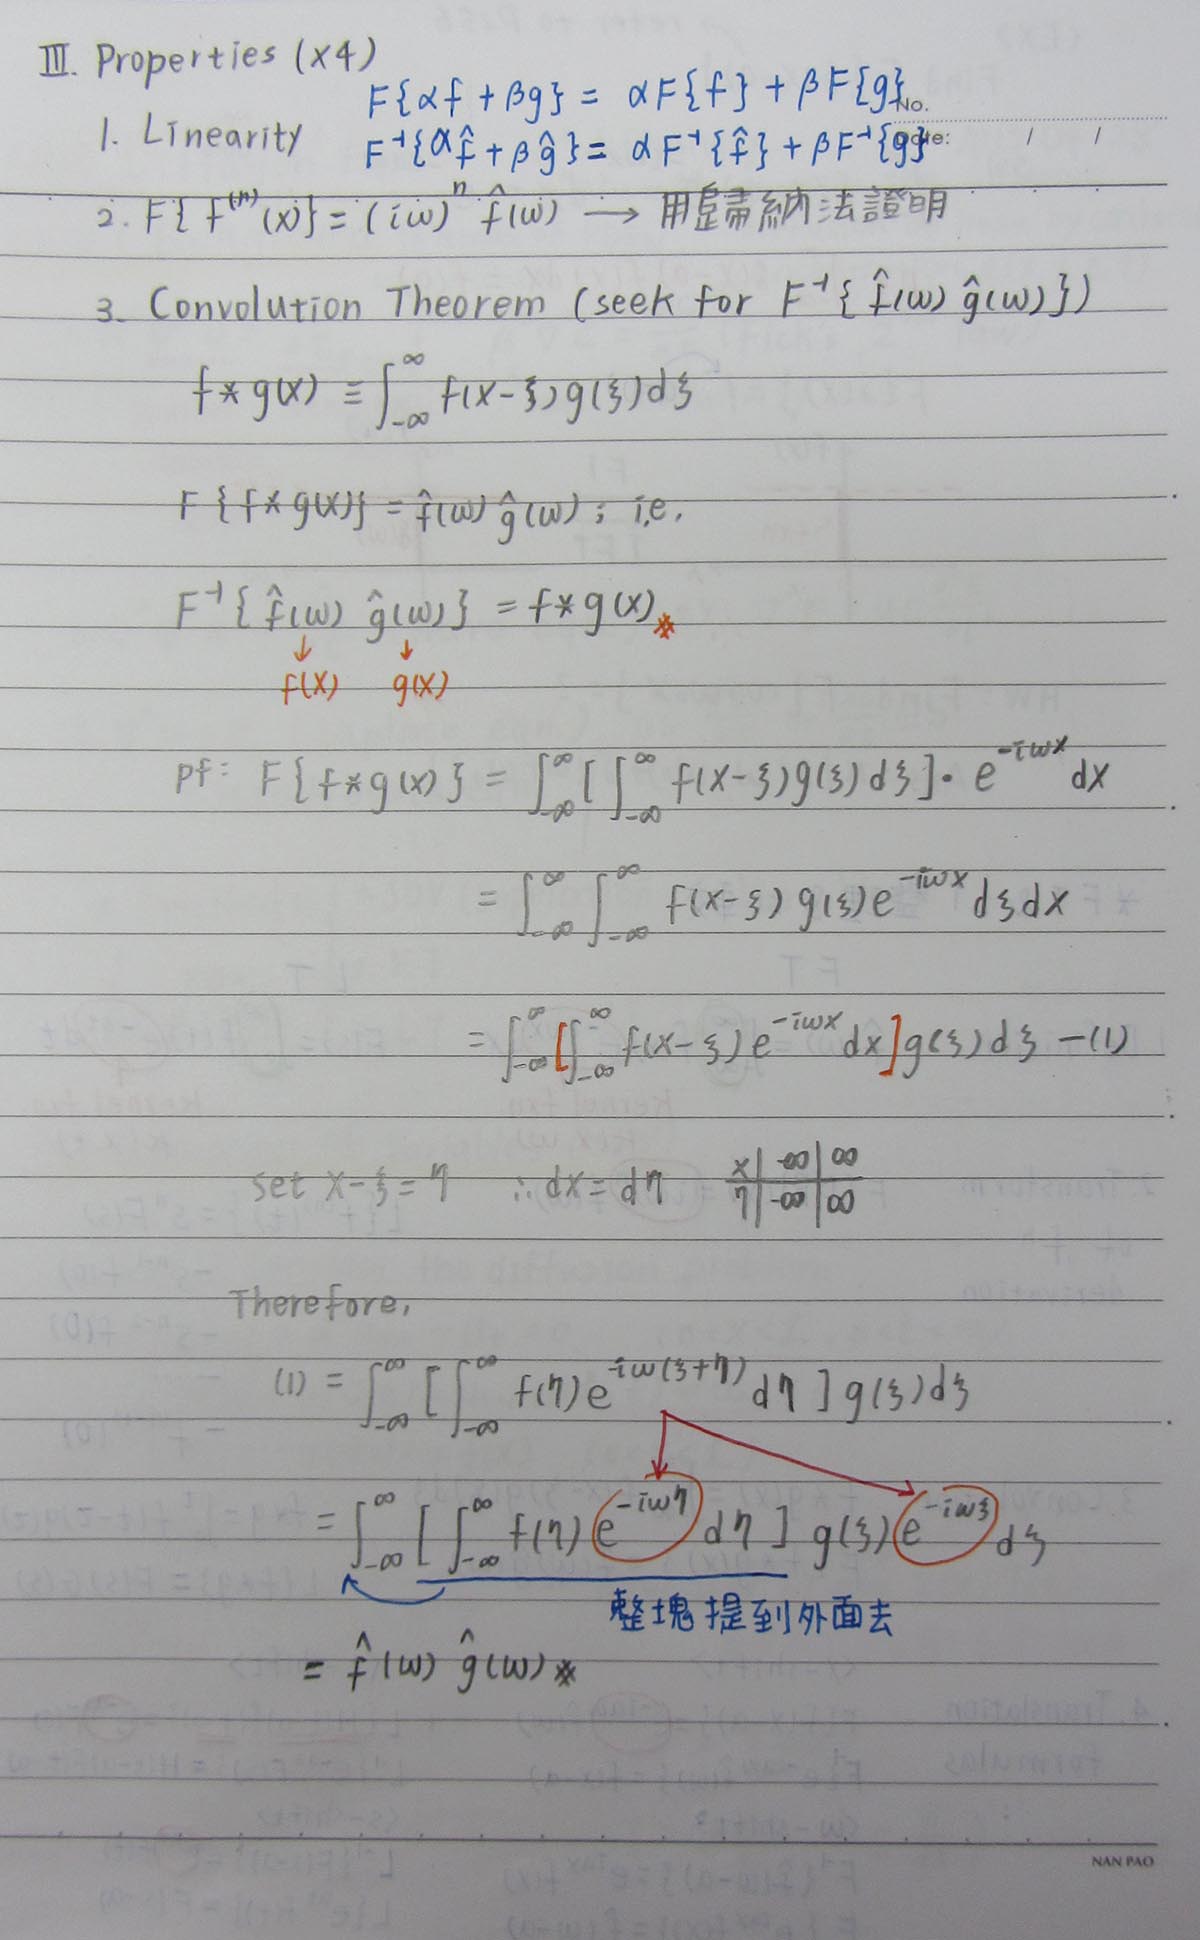 III. Properties (x4)
F{αf + βg} = αF{f} + βF{g}
No.
1. Linearity
F⁻¹{αf̂ + βĝ} = αF⁻¹{f̂} + βF⁻¹{g}
Date: / /
2. F{f⁽ⁿ⁾(x)} = (iω)ⁿ f̂(ω) → 用歸納法證明
3. Convolution Theorem (seek for F⁻¹{f̂(ω) ĝ(ω)})
f*g(x) ≡ ∫_{-∞}^{∞} f(x-ξ)g(ξ)dξ
F{f*g(x)} = f̂(ω) ĝ(ω); i.e.
F⁻¹{f̂(ω) ĝ(ω)} = f*g(x) *
↓ ↓
f(x) g(x)
pf: F{f*g(x)} = ∫_{-∞}^{∞} [∫_{-∞}^{∞} f(x-ξ)g(ξ)dξ]·e^{-iωx} dx
= ∫_{-∞}^{∞} ∫_{-∞}^{∞} f(x-ξ) g(ξ)e^{-iωx} dξdx
= ∫_{-∞}^{∞} [∫_{-∞}^{∞} f(x-ξ) e^{-iωx} dx] g(ξ)dξ —(1)
set x-ξ=η ∴dx=dη x | -∞ | ∞
η | -∞ | ∞
Therefore,
(1) = ∫_{-∞}^{∞} [∫_{-∞}^{∞} f(η)e^{-iω(ξ+η)} dη] g(ξ)dξ
= ∫_{-∞}^{∞} [∫_{-∞}^{∞} f(η) e^{-iωη} dη] g(ξ) e^{-iωξ} dξ
整塊提到外面去
= f̂(ω) ĝ(ω) *
NAN PAO